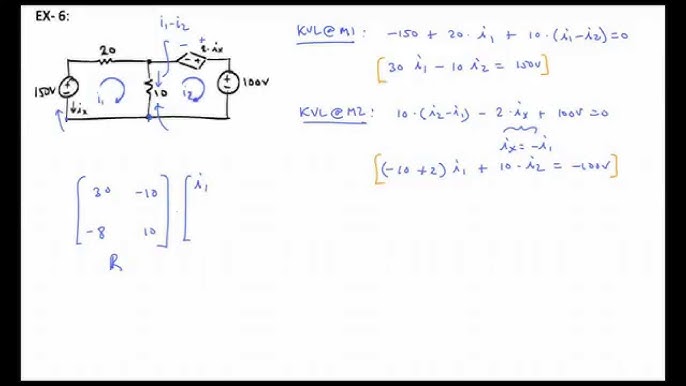 EX- 6:
i₁-i₂
20
- +
2·ix
- +
150V
ix
i₁
10
i₂
100V
KVL@M1: -150 + 20·i₁ + 10·(i₁-i₂)=0
[30 i₁ - 10 i₂ = 150V]
KVL@M2: 10·(i₂-i₁) - 2·ix + 100V=0
ix=-i₁
[(-10+2) i₁ + 10·i₂ = -100V]
[30 -10] · [i₁
-8 10
R